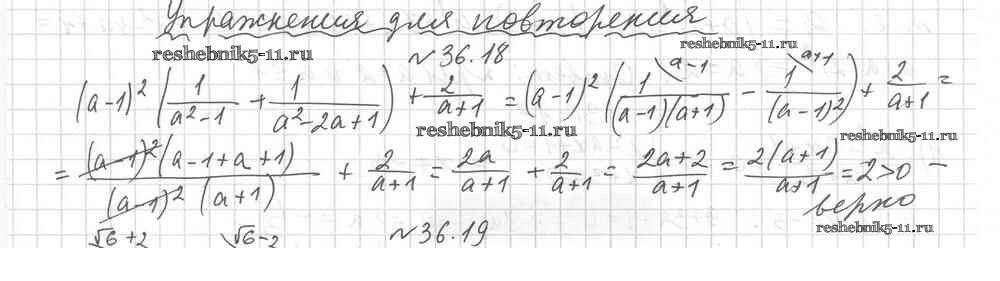 Упражнения для повторения
reshebnik5-11.ru
reshebnik5-11.ru
№36.18
(a-1)² (1/(a²-1) + 1/(a²-2a+1)) + 2/(a+1) = (a-1)² (1\a-1/((a-1)(a+1)) - 1\a+1/((a-1)²)) + 2/(a+1) =
reshebnik5-11.ru
reshebnik5-11.ru
= (a-1)²(a-1+a+1)/((a-1)²(a+1)) + 2/(a+1) = 2a/(a+1) + 2/(a+1) = (2a+2)/(a+1) = 2(a+1)/(a+1) = 2>0 –
верно
reshebnik5-11.ru
√6+2 √6-2
№36.19